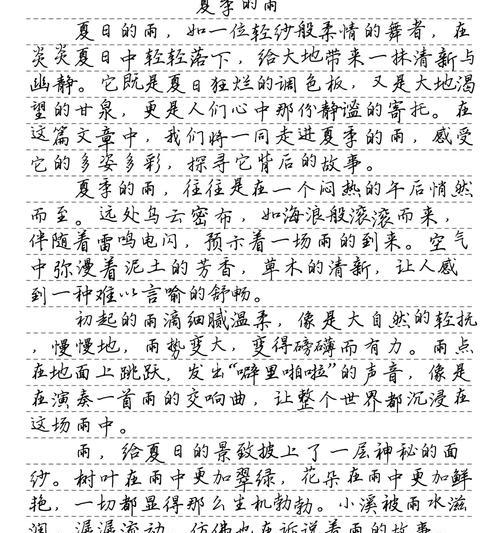 夏季的雨
夏日的雨，如一位轻纱般柔情的舞者，在
炎炎夏日中轻轻落下，给大地带来一抹清新与
幽静。它既是夏日狂烂的调色板，又是大地渴
望的甘泉，更是人们心中那份静谧的寄托。在
这篇文章中，我们将一同走进夏季的雨，感受
它的多姿多彩，探寻它背后的故事。
夏季的雨，往往是在一个闷热的午后悄然
而至。远处乌云密布，如海浪般滚滚而来，
伴随着雷鸣电闪，预示着一场雨的到来。空气
中弥漫着泥土的芳香，草木的清新，让人感
到一种难以言喻的舒畅。
初起的雨滴细腻温柔，像是大自然的轻抚
，慢慢地，雨势变大，变得磅礴而有力。雨点
在地面上跳跃，发出“噼里啪啦”的声音，像是
在演奏一首雨的交响曲，让整个世界都沉浸在
这场雨中。
雨，给夏日的景致披上了一层神秘的面
纱。树叶在雨中更加翠绿，花朵在雨中更加鲜
艳，一切都显得那么生机勃勃。小溪被雨水滋
润，潺潺流动，仿佛也在诉说着雨的故事。